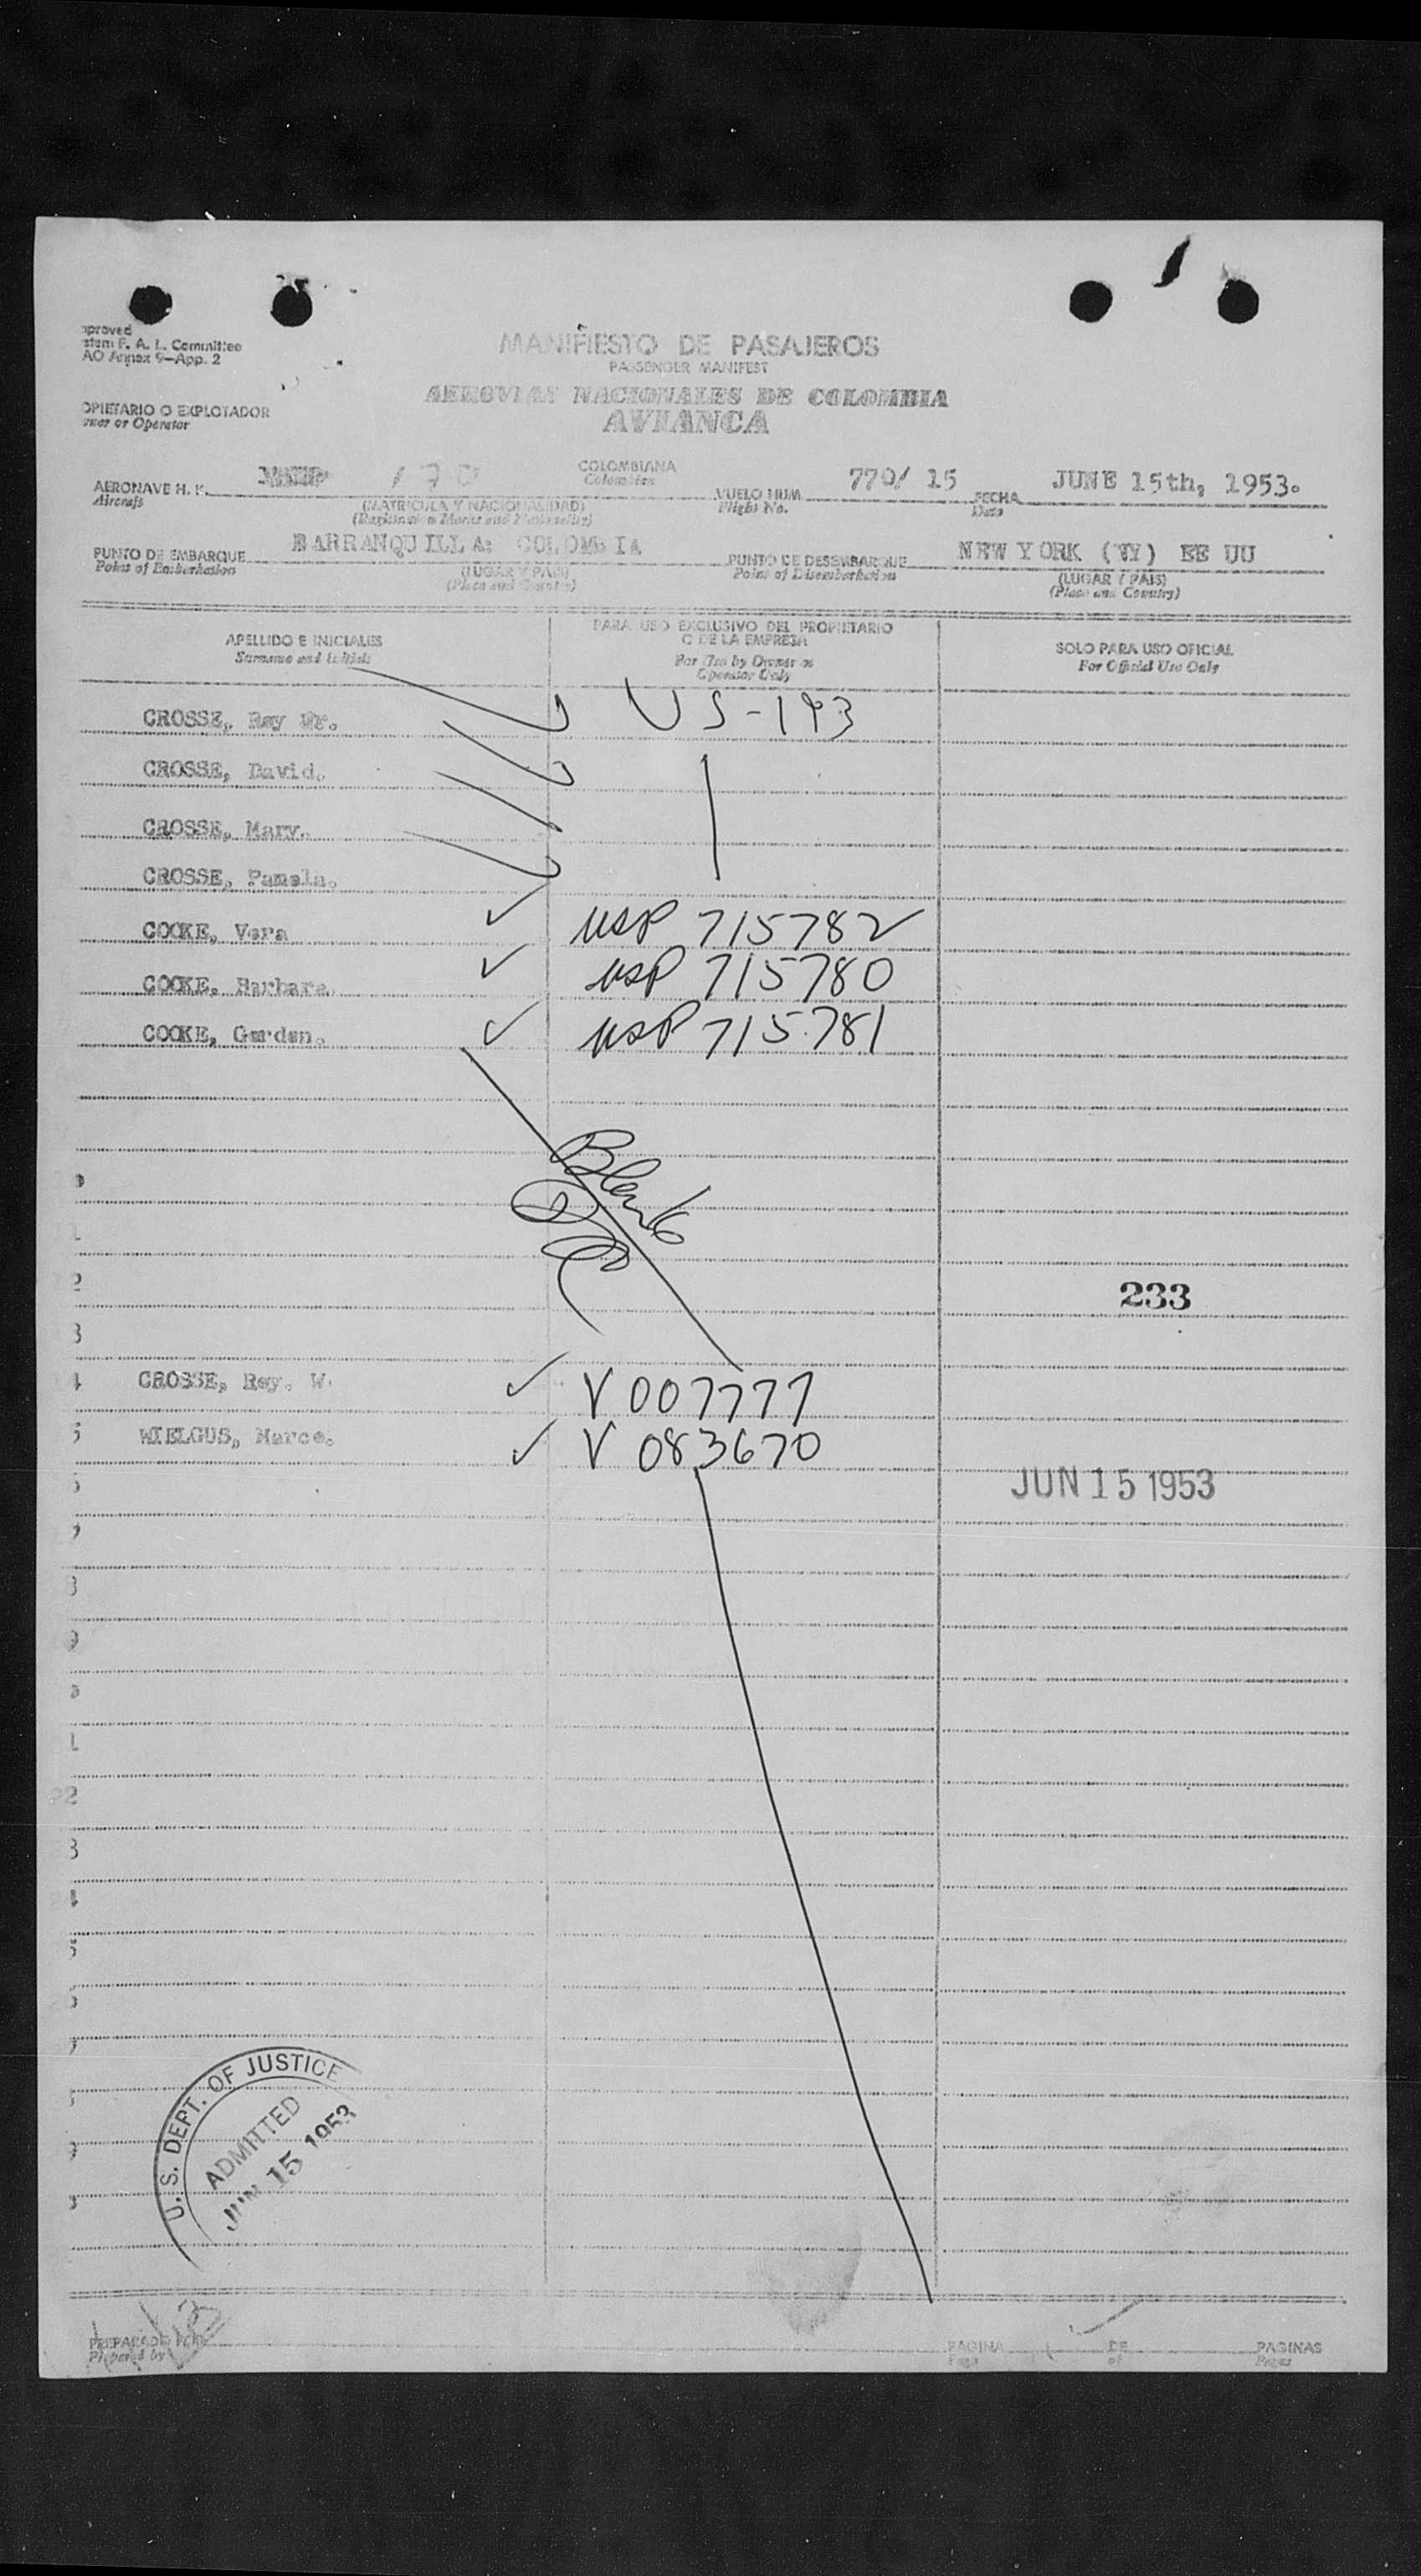 proved
stem F. A. L. Committee
AO Annex 9—App. 2
MANIFIESTO DE PASAJEROS
PASSENGER MANIFEST
AEROVIAS NACIONALES DE COLOMBIA
AVIANCA
OPIETARIO O EXPLOTADOR
wner or Operator
AERONAVE H. K. 170 COLOMBIANA VUELO NUM. 770/ 15 FECHA JUNE 15th, 1953.
Aircraft (MATRICULA Y NACIONALIDAD) Colombian Flight No. Date
(Registration Marks and Nationality)
PUNTO DE EMBARQUE BARRANQUILLA: COLOMBIA PUNTO DE DESEMBARQUE NEW YORK (NY) EE UU
Point of Embarkation (LUGAR Y PAIS) Point of Disembarkation (LUGAR Y PAIS)
(Place and Country) (Place and Country)
APELLIDO E INICIALES
Surname and Initials
PARA USO EXCLUSIVO DEL PROPIETARIO
O DE LA EMPRESA
For Use by Owner or
Operator Only
SOLO PARA USO OFICIAL
For Official Use Only
CROSSE, Ray Dr. US-193
CROSSE, David.
CROSSE, Mary.
CROSSE, Pamela.
COOKE, Vera USP 715782
COOKE, Barbara. USP 715780
COOKE, Gordon. USP 715781
Blank
2
233
3
4 CROSSE, Ray. W. V 007777
5 WIELGUS, Marce. V 083670
JUN 15 1953
3
9
1
22
3
U. S. DEPT. OF JUSTICE
ADMITTED
JUN 15 1953
PREPARADO POR PAGINA 1 DE PAGINAS
Prepared by Page of Pages